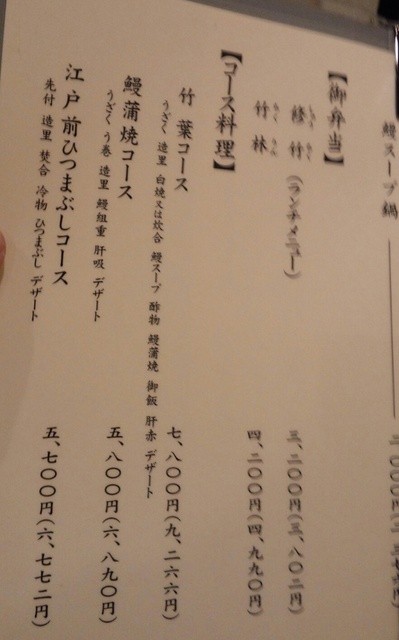 鰻スープ鍋
【御弁当】
修竹(ランチメニュー) 三、二〇〇円(三、八〇二円)
竹林 四、二〇〇円(四、九九〇円)
【コース料理】
竹葉コース 七、八〇〇円(九、二六六円)
うざく 造里 白焼又は炊合 鰻スープ 酢物 鰻蒲焼 御飯 肝赤 デザート
鰻蒲焼コース 五、八〇〇円(六、八九〇円)
うざく う巻 造里 鰻組重 肝吸 デザート
江戸前ひつまぶしコース 五、七〇〇円(六、七七二円)
先付 造里 焚合 冷物 ひつまぶし デザート